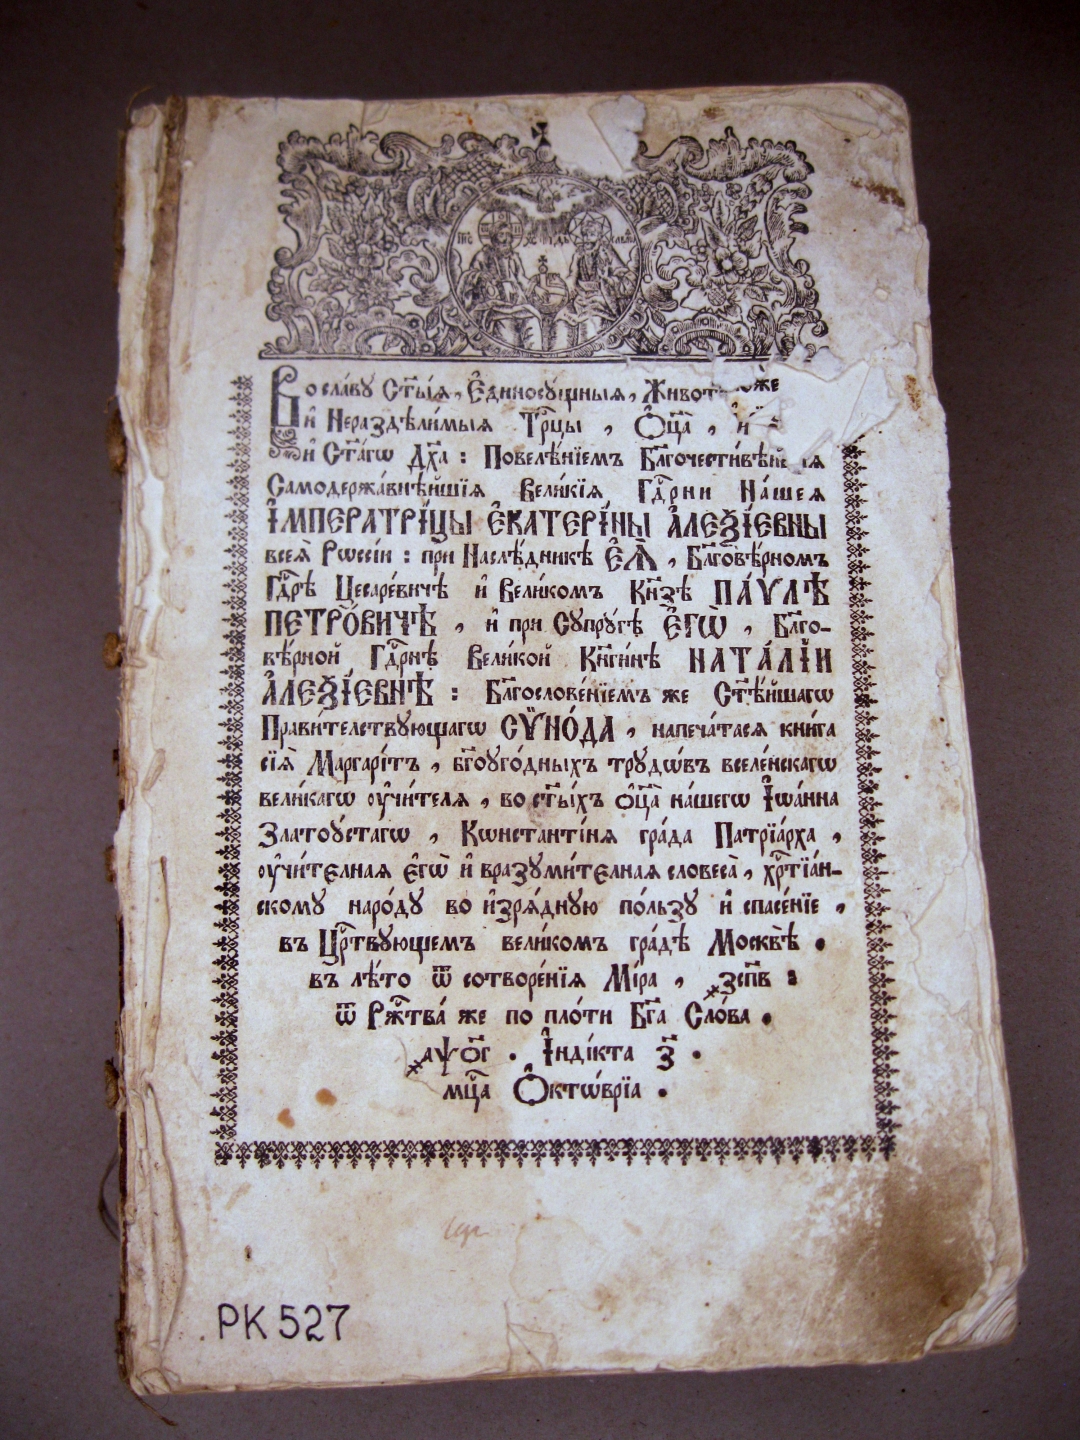 І҃ИС Х҃С
Во сла́ву Ст҃ы́ѧ, Є҆диносꙋ́щныѧ, Живот
и҆ Нераздѣли́мыѧ Трⷪ҇цы, Ѻ҆ц҃а̀, и҆
и҆ Ст҃а́гѡ Дх҃а: Повелѣ́нїемъ Бл҃гочести́вѣйшїѧ
Самодержа́внѣйшїѧ Вели́кїѧ Гдⷭ҇рни На́шеѧ
І҆МПЕРАТРИ́ЦЫ Є҆КАТЕРИ́НЫ А҆ЛЕѮІ́ЕВНЫ
всеѧ̀ Рѡссі́и: при Наслѣ́дникѣ Є҆Ѧ̀, Бл҃говѣ́рномъ
Гдⷭ҇рѣ Цесаре́вичѣ и҆ Вели́комъ Кн҃зѣ ПА́ѴЛѢ
ПЕТРО́ВИЧѢ, и҆ при Сꙋпрꙋ́гѣ Є҆ГѠ̀, Бл҃го-
вѣ́рной Гдⷭ҇рнѣ Вели́кой Кн҃ги́нѣ НАТА́ЛЇИ
А҆ЛЕѮІ́ЕВНѢ: Бл҃гослове́нїемъ же Ст҃ѣ́йшагѡ
Прави́телствꙋющагѡ СѴНО́ДА, напеча́тасѧ кни́га
сїѧ̀ Маргари́тъ, бг҃оꙋго́дныхъ трꙋдѡ́въ вселе́нскагѡ
вели́кагѡ ᲂу҆чи́телѧ, во ст҃ы́хъ ѻ҆ц҃а̀ на́шегѡ І҆ѡа́нна
Златоꙋ́стагѡ, Кѡнстанті́нѧ гра́да Патрїа́рха,
ᲂу҆чи́телнаѧ є҆гѡ̀ и҆ вразꙋми́телнаѧ словеса̀, хрⷭ҇тїа́н-
скомꙋ наро́дꙋ во и҆зрѧ́днꙋю по́льзꙋ и҆ спасе́нїе,
въ Црⷭ҇твꙋющемъ вели́комъ гра́дѣ Москвѣ̀.
въ лѣ́то ѿ сотворе́нїѧ Мі́ра, ҂зсп҃в:
ѿ Ржⷭ҇тва́ же по пло́ти Бг҃а Сло́ва.
҂аѱо҃г. І҆нді́кта з҃.
мцⷭ҇а Ѻ҆ктѡ́врїа.
РК 527